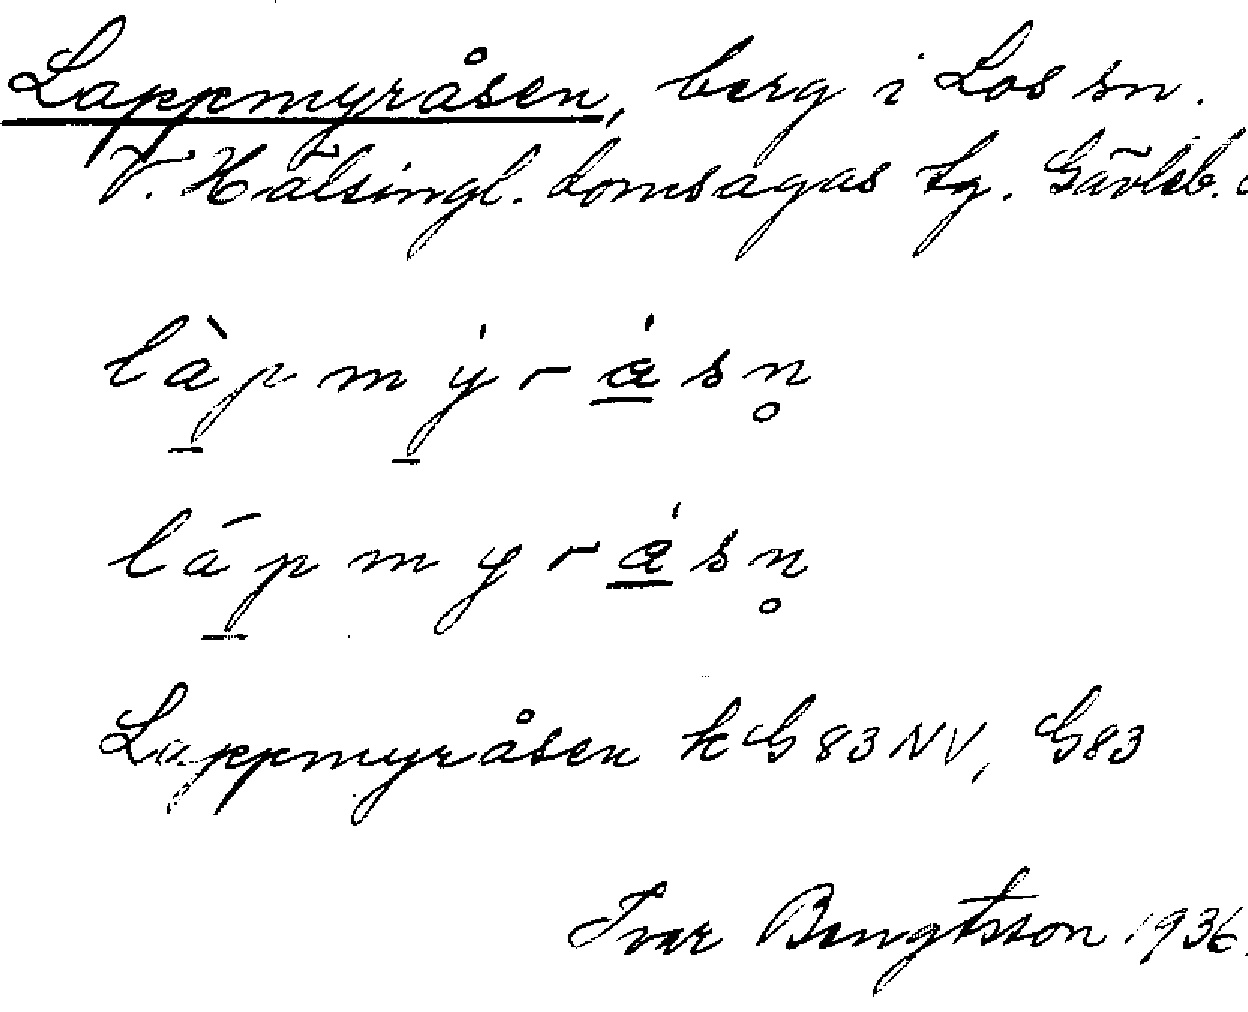 Lappmyråsen, berg i Los sn.
V. Hälsingl. domsagas tg. Gävleb.
làpmýrásn̥
lápmyrásn̥
Lappmyråsen k G 83 NV, G83
Ivar Bengtsson 1936.